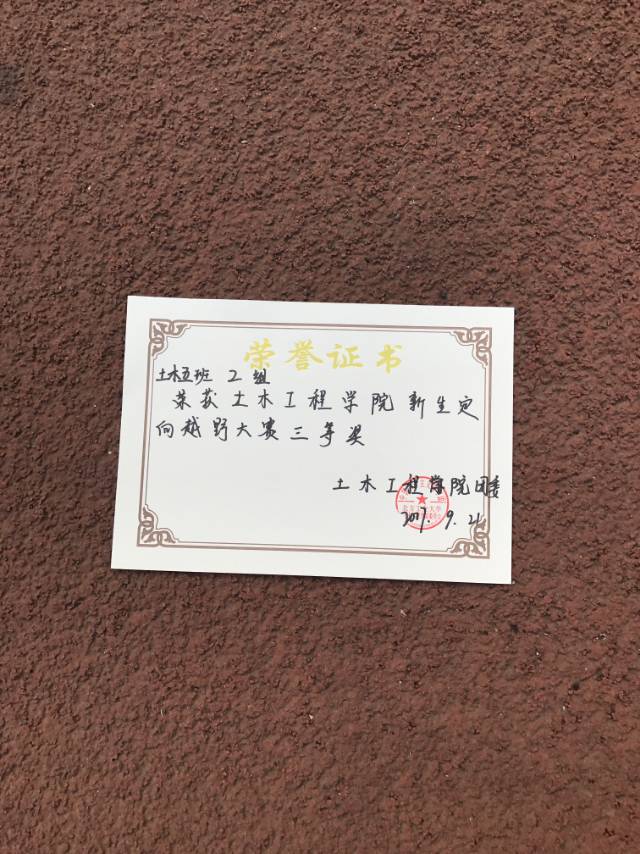 荣誉证书
土木五班 2组
荣获土木工程学院新生定
向越野大赛三等奖
土木工程学院团委
2017.9.21